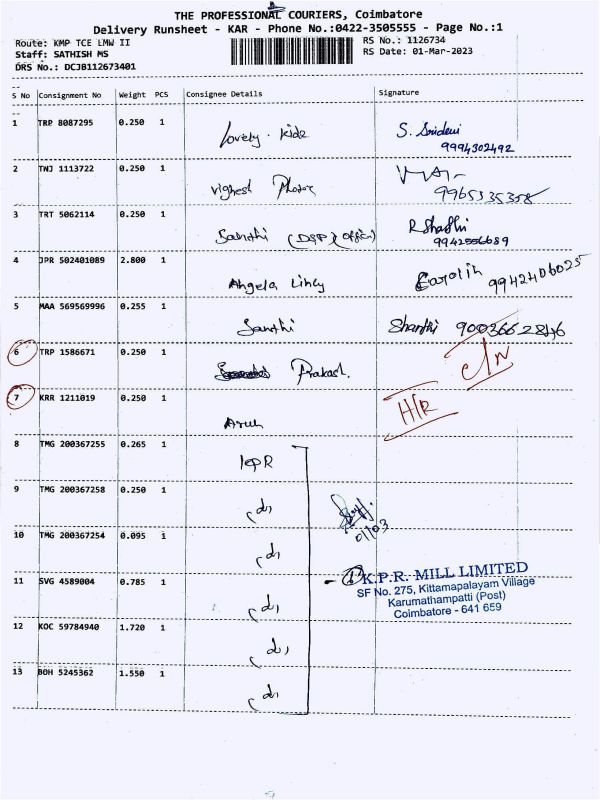 THE PROFESSIONAL COURIERS, Coimbatore
Delivery Runsheet - KAR - Phone No.:0422-3505555 - Page No.:1
Route: KMP TCE LMW II
RS No.: 1126734
Staff: SATHISH MS
RS Date: 01-Mar-2023
DRS No.: DCJB112673401
S No Consignment No Weight PCS Consignee Details Signature
1 TRP 8087295 0.250 1 Lovely. kidz S. Sridevi
9994302492
2 TWJ 1113722 0.250 1 Photos
9965335358
3 TRT 5062114 0.250 1 Santhi (DSP) (Office) R Shanthi
9942556689
4 JPR 502401089 2.800 1 Angela Carolin 9942406025
5 MAA 569569996 0.255 1 Santhi Shanthi 9003662846
6 TRP 1586671 0.250 1 Prakash. C/N
7 KRR 1211019 0.250 1 Arun H/R
8 TMG 200367255 0.265 1 KPR
9 TMG 200367258 0.250 1
01/03
10 TMG 200367254 0.095 1
11 SVG 4589004 0.785 1
K.P.R. MILL LIMITED
SF No. 275, Kittamapalayam Village
Karumathampatti (Post)
Coimbatore - 641 659
12 KOC 59784940 1.720 1
13 BOH 5245362 1.550 1